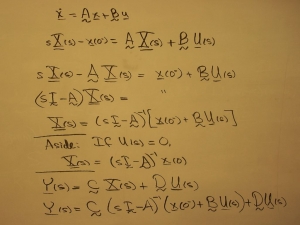 ẋ = A x + B u
s X(s) - x(0⁻) = A X(s) + B U(s)
s X(s) - A X(s) = x(0⁻) + B U(s)
(sI - A) X(s) = "
X(s) = (sI - A)⁻¹ [x(0⁻) + B U(s)]
Aside: If U(s) = 0,
X(s) = (sI - A)⁻¹ x(0)
Y(s) = C X(s) + D U(s)
Y(s) = C (sI - A)⁻¹ (x(0⁻) + B U(s)) + D U(s)